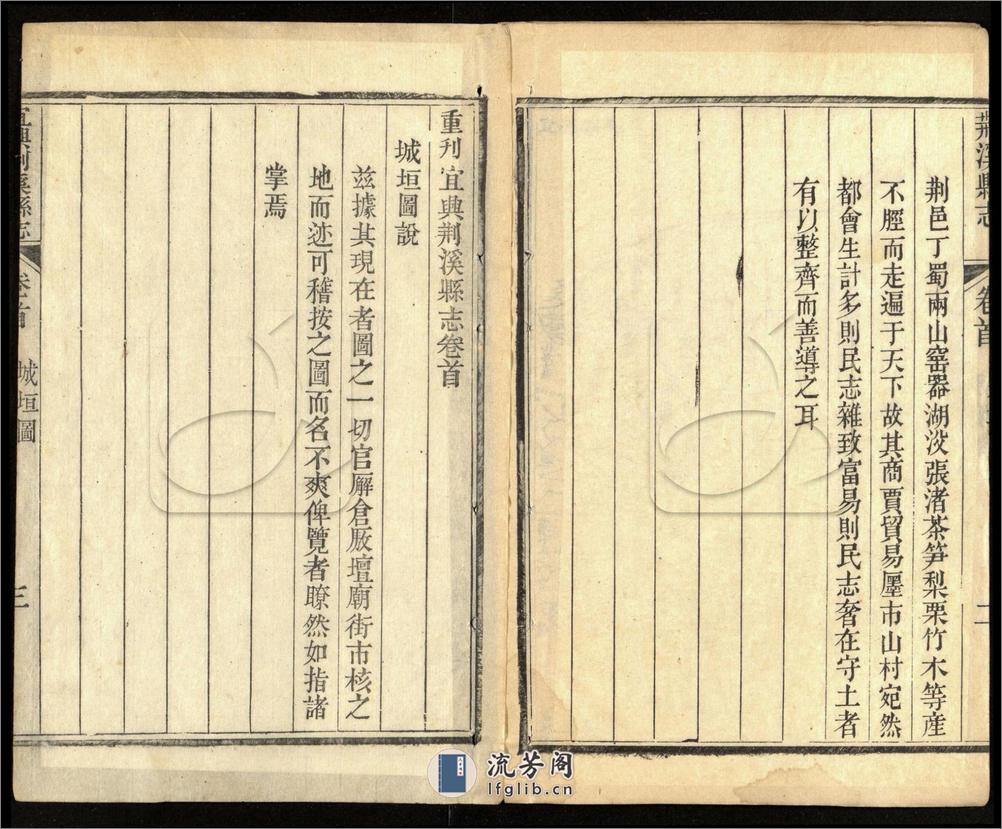 荆溪縣志
卷首
二
荆邑丁蜀兩山窑器湖㳇張渚茶笋梨栗竹木等産
不脛而走遍于天下故其商賈貿易廛市山村宛然
都會生計多則民志雜致富易則民志奢在守土者
有以整齊而善導之耳
重刊宜興荆溪縣志卷首
城垣圖說
兹據其現在者圖之一切官廨倉厫壇廟街市核之
地而迹可稽按之圖而名不爽俾覽者瞭然如指諸
掌焉
宜興荆溪縣志
卷首
城垣圖
三
流芳阁
lfglib.cn